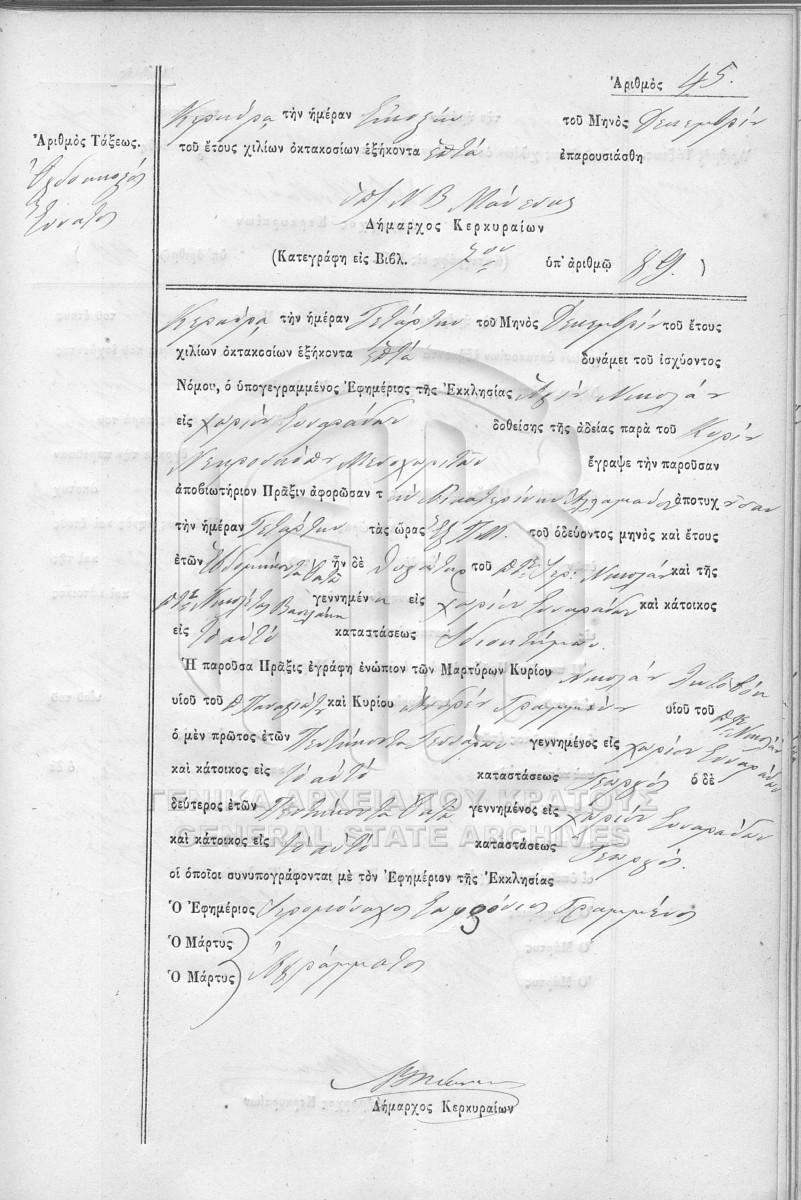 Ἀριθμὸς 45.
Κέρκυρα, τὴν ἡμέραν τοῦ Μηνὸς Δεκεμβρίου
Ἀριθμὸς Τάξεως.
τοῦ ἔτους χιλίων ὀκτακοσίων ἑξήκοντα ἑπτὰ ἐπαρουσιάσθη
Ὀγδοηκοστὸς
Ἔννατος
Δήμαρχος Κερκυραίων
(Κατεγράφη εἰς Βιβλ. 7ον ὑπ' ἀριθμῷ 89.)
Κέρκυρα, τὴν ἡμέραν Τετάρτην τοῦ Μηνὸς Δεκεμβρίου τοῦ ἔτους
χιλίων ὀκτακοσίων ἑξήκοντα ἑπτὰ δυνάμει τοῦ ἰσχύοντος
Νόμου, ὁ ὑπογεγραμμένος Ἐφημέριος τῆς Ἐκκλησίας Ἁγίου Νικολάου
εἰς χωρίον Συναράδων δοθείσης τῆς ἀδείας παρὰ τοῦ Κυρίου
ἔγραψε τὴν παροῦσαν
ἀποβιωτήριον Πρᾶξιν ἀφορῶσαν τὴν ἀποτυχοῦσαν
τὴν ἡμέραν Τετάρτην τὰς ὥρας ἓξ Π.Μ. τοῦ ὁδεύοντος μηνὸς καὶ ἔτους
ἐτῶν ἦν δὲ θυγάτηρ τοῦ Νικολάου καὶ τῆς
γεννημένη εἰς χωρίον Συναράδων καὶ κάτοικος
εἰς τὸ αὐτὸ καταστάσεως
Ἡ παροῦσα Πρᾶξις ἐγράφη ἐνώπιον τῶν Μαρτύρων Κυρίου Νικολάου
υἱοῦ τοῦ καὶ Κυρίου Γραμμένου υἱοῦ τοῦ Νικολάου
ὁ μὲν πρῶτος ἐτῶν Πεντήκοντα γεννημένος εἰς χωρίον Συναράδων
καὶ κάτοικος εἰς τὸ αὐτὸ καταστάσεως Γεωργὸς ὁ δὲ
ΓΕΝΙΚΑ ΑΡΧΕΙΑ ΤΟΥ ΚΡΑΤΟΥΣ
δεύτερος ἐτῶν Πεντήκοντα ἑπτὰ γεννημένος εἰς χωρίον Συναράδων
GENERAL STATE ARCHIVES
καὶ κάτοικος εἰς τὸ αὐτὸ καταστάσεως Γεωργὸς.
οἱ ὁποῖοι συνυπογράφονται μὲ τὸν Ἐφημέριον τῆς Ἐκκλησίας
Ὁ Ἐφημέριος Ἱερομόναχος Σωφρόνιος Γραμμένος
Ὁ Μάρτυς
Ὁ Μάρτυς Ἀγράμματοι
Δήμαρχος Κερκυραίων